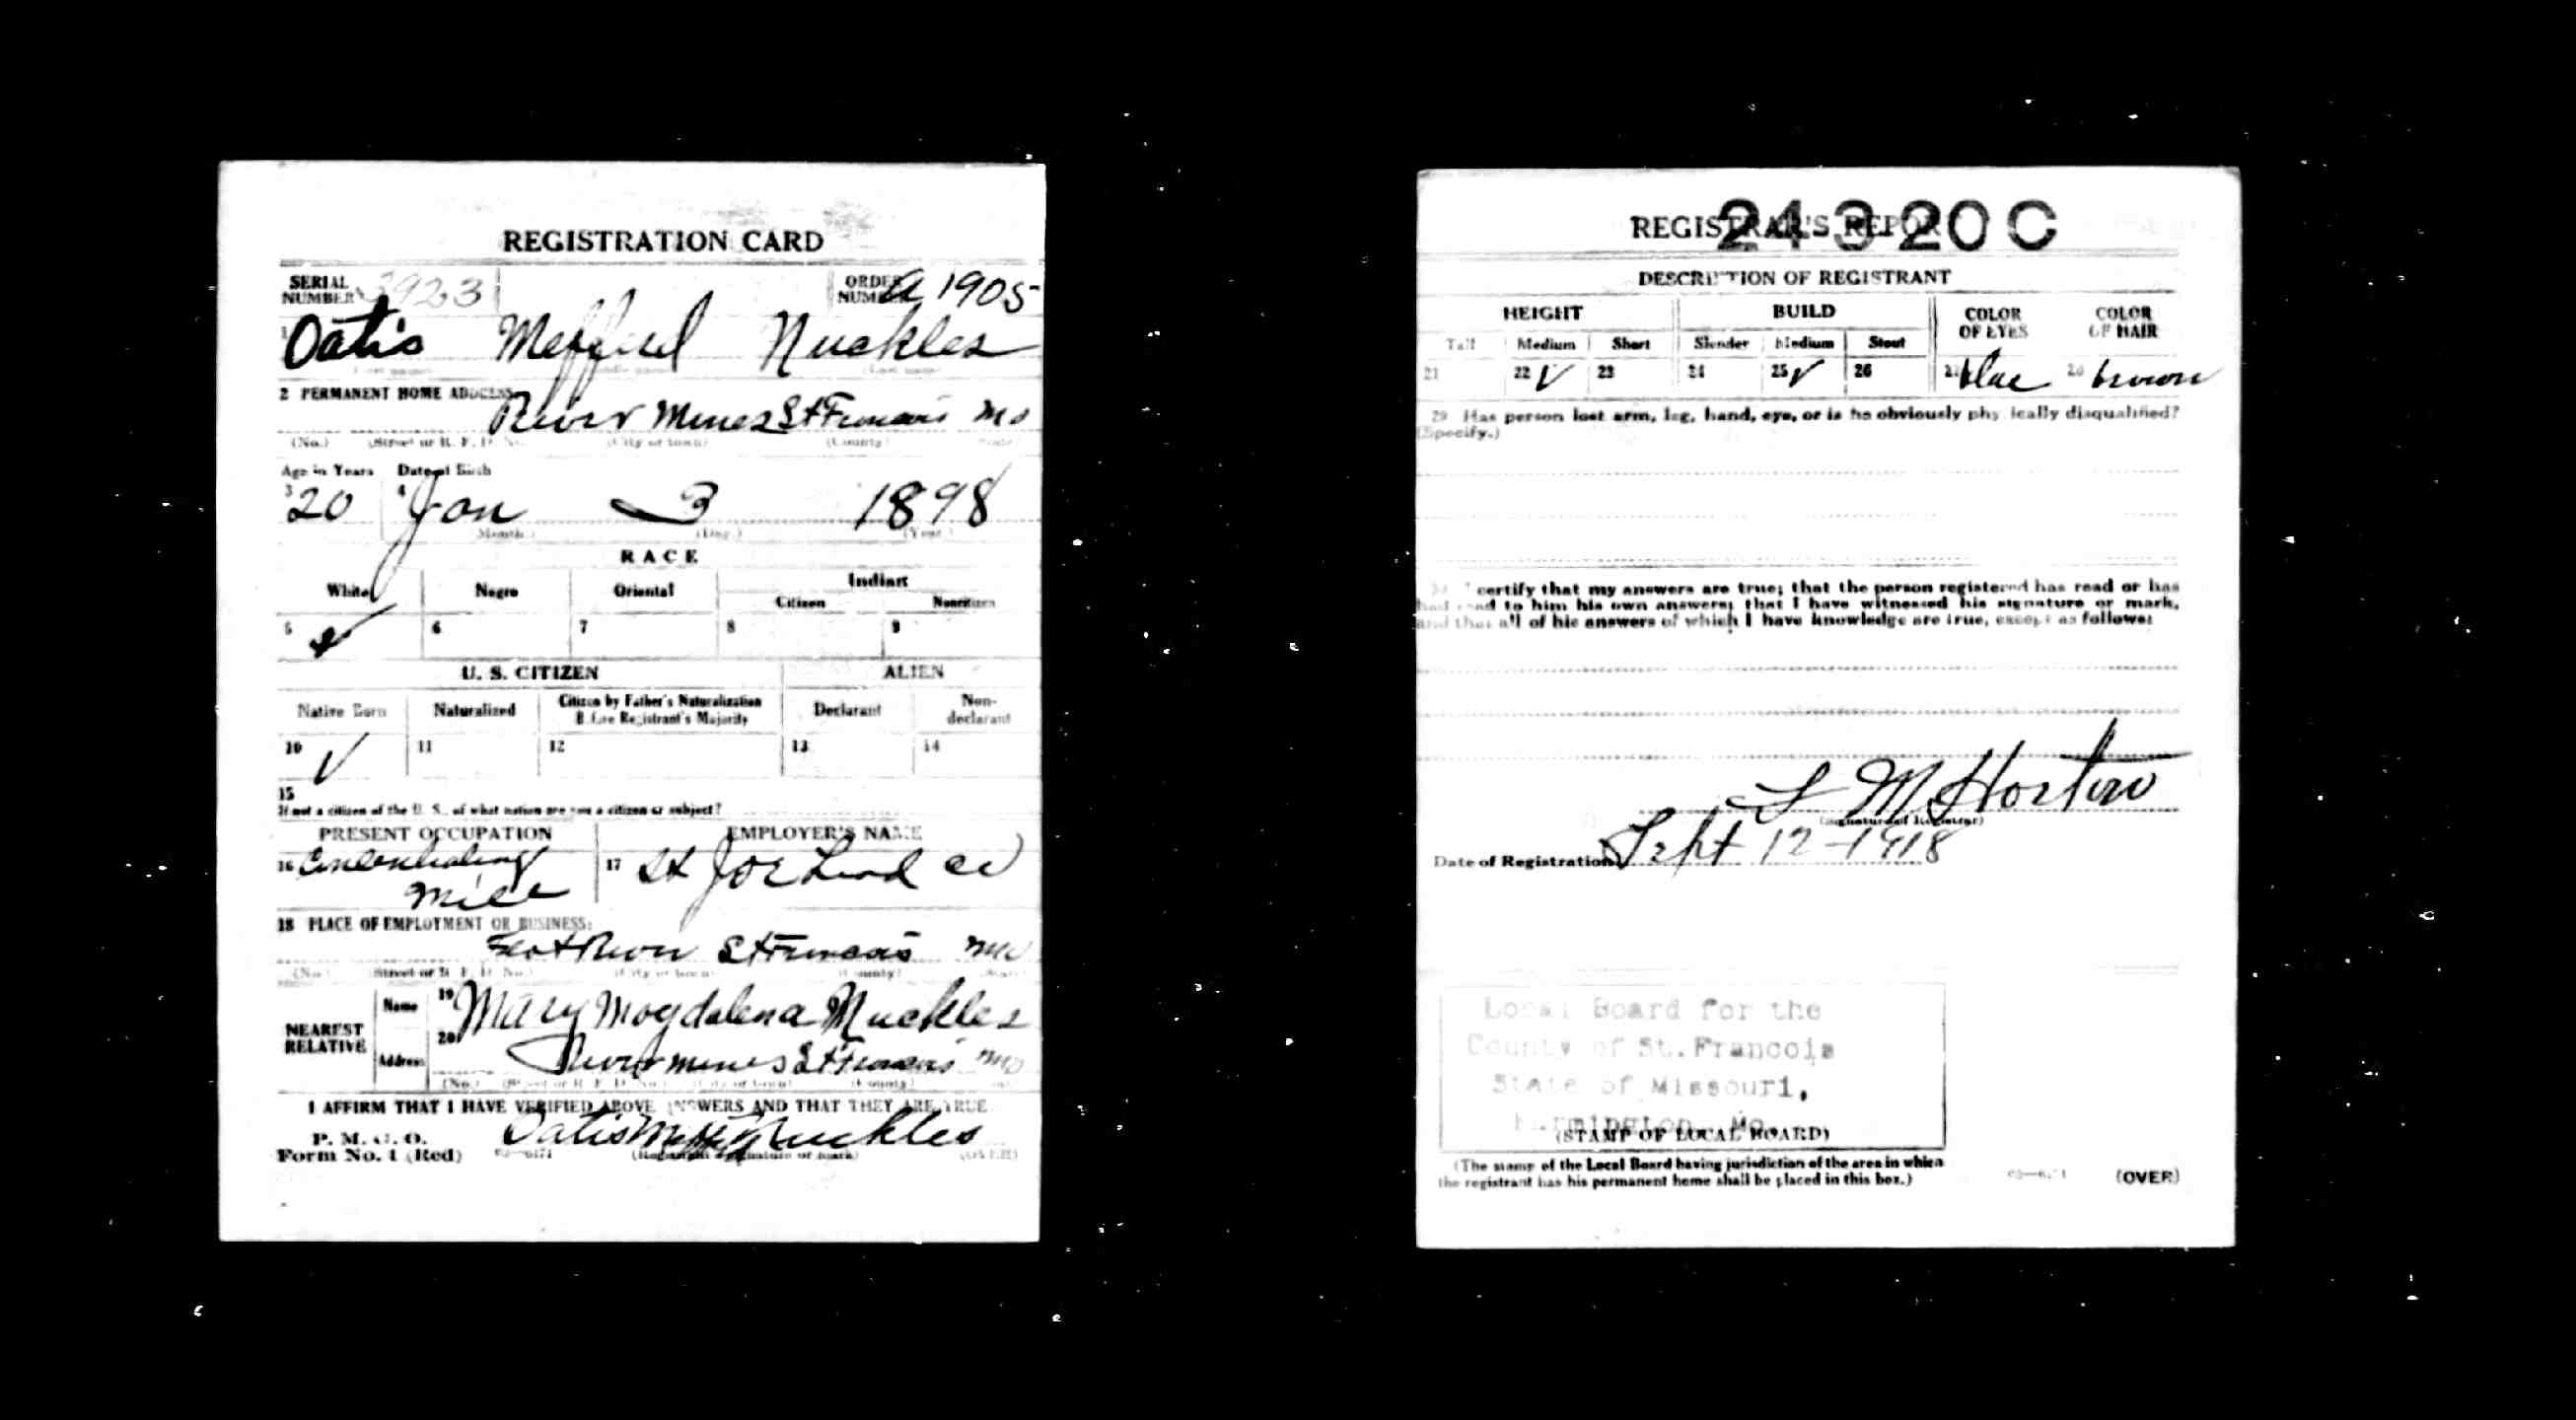 REGISTRATION CARD
SERIAL NUMBER 3923
ORDER NUMBER A 1905
1 Oatis Mefford Nuckles
2 PERMANENT HOME ADDRESS:
River Mines St Francois Mo
(No.) (Street or R. F. D. No.) (City or town) (County) (State)
Age in Years Date of Birth
3 20 4 Jan 3 1898
(Month.) (Day.) (Year.)
RACE
White Negro Oriental Indian
Citizen Noncitizen
5 ✓ 6 7 8 9
U. S. CITIZEN ALIEN
Native Born Naturalized Citizen by Father's Naturalization Before Registrant's Majority Declarant Non-declarant
10 ✓ 11 12 13 14
15
If not a citizen of the U. S., of what nation are you a citizen or subject?
PRESENT OCCUPATION EMPLOYER'S NAME
16 Mill 17 St Joe Lead Co
18 PLACE OF EMPLOYMENT OR BUSINESS:
Flat River St Francois Mo
(No.) (Street or R. F. D. No.) (City or town) (County) (State)
NEAREST RELATIVE
Name 19 Mary Magdalena Nuckles
Address 20 River mines St Francois Mo
(No.) (Street or R. F. D. No.) (City or town) (County)
I AFFIRM THAT I HAVE VERIFIED ABOVE ANSWERS AND THAT THEY ARE TRUE
P. M. G. O.
Form No. 1 (Red)
Oatis Mefford Nuckles
(Registrant's signature or mark) (OVER)
24320C
REGISTRAR'S REPORT
DESCRIPTION OF REGISTRANT
HEIGHT BUILD COLOR OF EYES COLOR OF HAIR
Tall Medium Short Slender Medium Stout
21 22 ✓ 23 24 25 ✓ 26 27 blue 28 brown
29 Has person lost arm, leg, hand, eye, or is he obviously physically disqualified?
(Specify.)
30 I certify that my answers are true; that the person registered has read or has
had read to him his own answers; that I have witnessed his signature or mark,
and that all of his answers of which I have knowledge are true, except as follows:
L M Horton
(Signature of Registrar)
Date of Registration Sept 12-1918
Local Board for the
County of St. Francois
State of Missouri,
Farmington, Mo.
(STAMP OF LOCAL BOARD)
(The stamp of the Local Board having jurisdiction of the area in which
the registrant has his permanent home shall be placed in this box.)
(OVER)